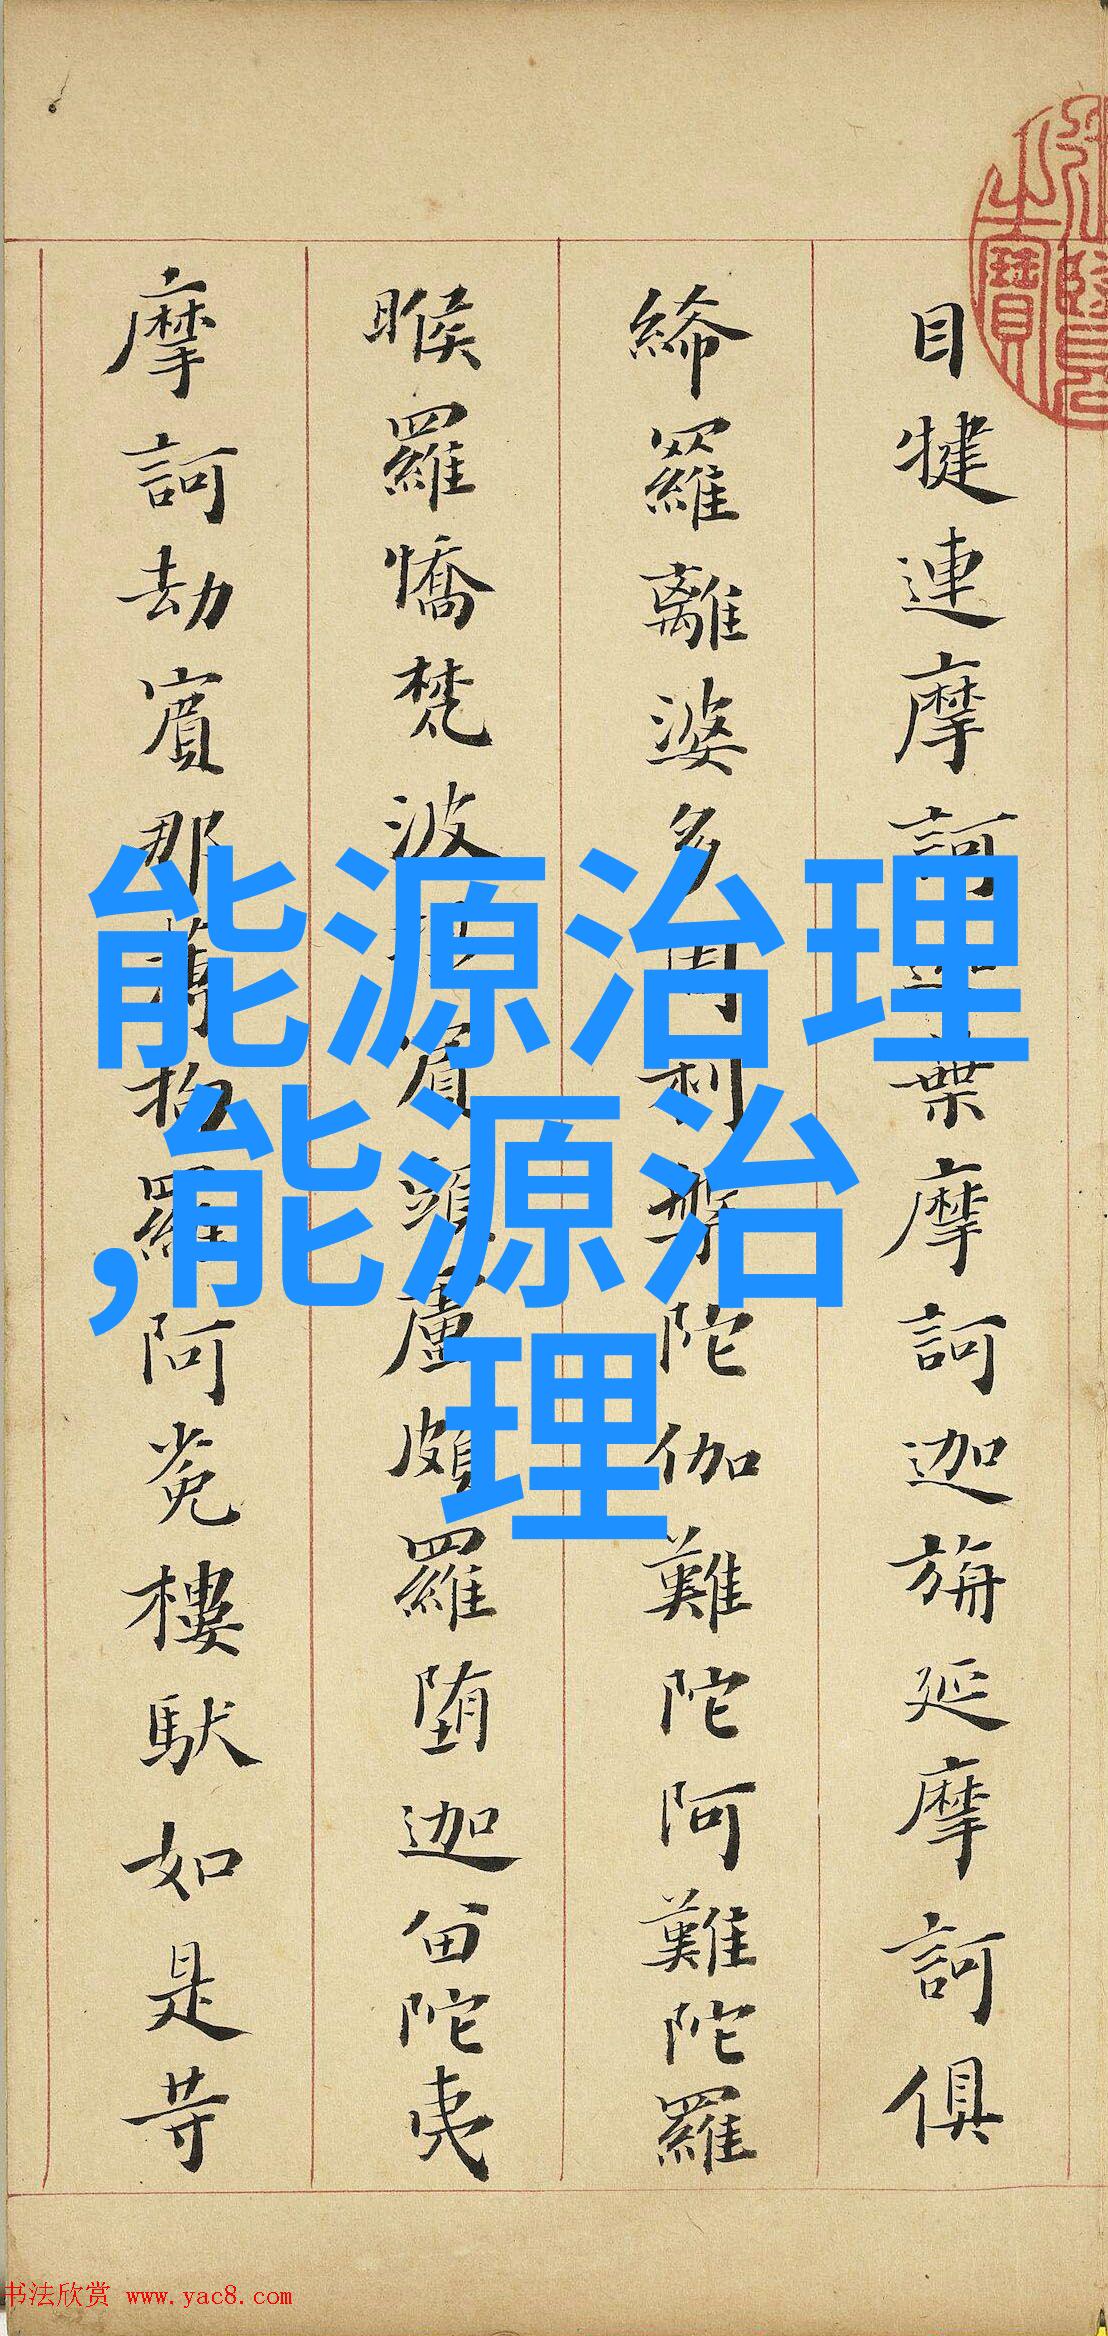 目犍連摩訶迦葉摩訶迦旃延摩訶俱
絺羅離婆多周利槃陀伽難陀阿難陀羅
睺羅憍梵波提賓頭盧頗羅堕迦留陀夷
摩訶劫賓那薄拘羅阿㝹樓馱如是等
之寶
能源治理
,能源治
理
书法欣赏 www.yac8.com